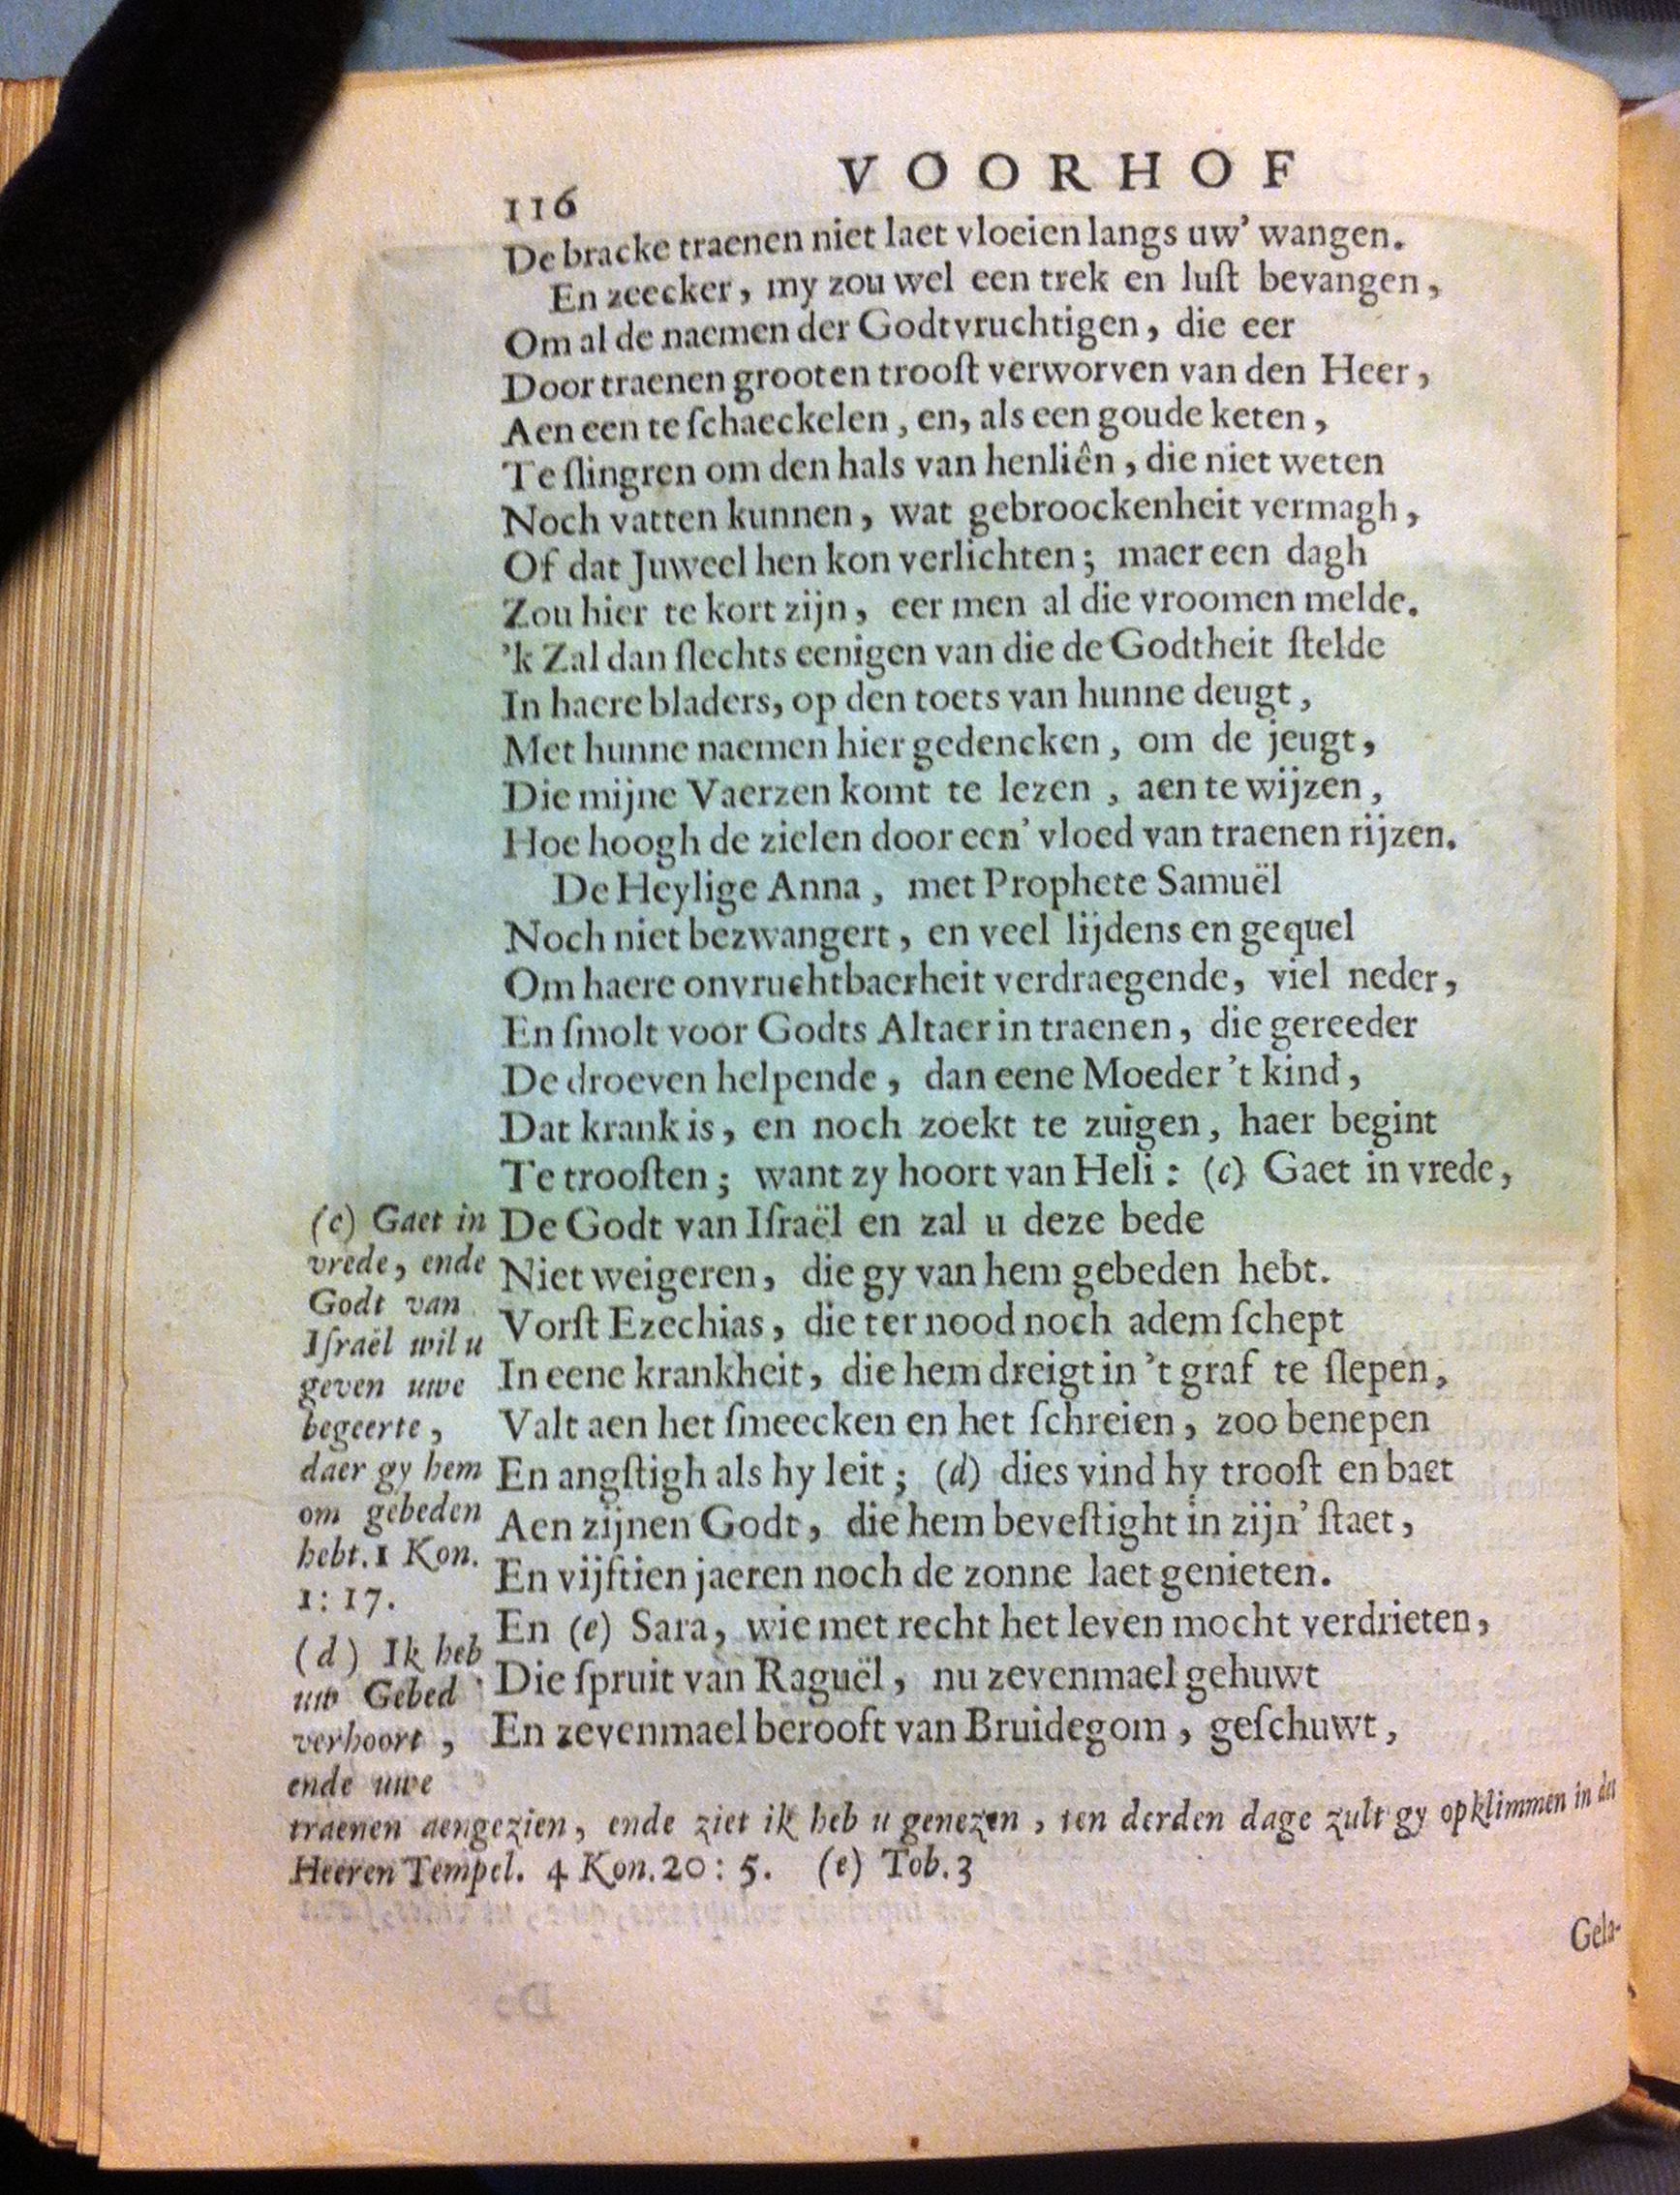 116 VOORHOF
De bracke traenen niet laet vloeien langs uw' wangen.
En zeecker, my zou wel een trek en luſt bevangen,
Om al de naemen der Godtvruchtigen, die eer
Door traenen grooten trooſt verworven van den Heer,
Aen een te ſchaeckelen, en, als een goude keten,
Te ſlingren om den hals van henliên, die niet weten
Noch vatten kunnen, wat gebroockenheit vermagh,
Of dat Juweel hen kon verlichten; maer een dagh
Zou hier te kort zijn, eer men al die vroomen melde.
'k Zal dan ſlechts eenigen van die de Godtheit ſtelde
In haere bladers, op den toets van hunne deugt,
Met hunne naemen hier gedencken, om de jeugt,
Die mijne Vaerzen komt te lezen, aen te wijzen,
Hoe hoogh de zielen door een' vloed van traenen rijzen.
De Heylige Anna, met Prophete Samuël
Noch niet bezwangert, en veel lijdens en gequel
Om haere onvruchtbaerheit verdraegende, viel neder,
En ſmolt voor Godts Altaer in traenen, die gereeder
De droeven helpende, dan eene Moeder 't kind,
Dat krank is, en noch zoekt te zuigen, haer begint
Te trooſten; want zy hoort van Heli: (c) Gaet in vrede,
De Godt van Iſraël en zal u deze bede
Niet weigeren, die gy van hem gebeden hebt.
Vorſt Ezechias, die ter nood noch adem ſchept
In eene krankheit, die hem dreigt in 't graf te ſlepen,
Valt aen het ſmeecken en het ſchreien, zoo benepen
En angſtigh als hy leit; (d) dies vind hy trooſt en baet
Aen zijnen Godt, die hem beveſtight in zijn' ſtaet,
En vijftien jaeren noch de zonne laet genieten.
En (e) Sara, wie met recht het leven mocht verdrieten,
Die ſpruit van Raguël, nu zevenmael gehuwt
En zevenmael berooft van Bruidegom, geſchuwt,
(c) Gaet in
vrede, ende
Godt van
Iſraël wil u
geven uwe
begeerte,
daer gy hem
om gebeden
hebt. 1 Kon.
1: 17.
(d) Ik heb
uw Gebed
verhoort,
ende uwe
traenen aengezien, ende ziet ik heb u genezen, ten derden dage zult gy opklimmen in des
Heeren Tempel. 4 Kon. 20: 5. (e) Tob. 3
Gela-